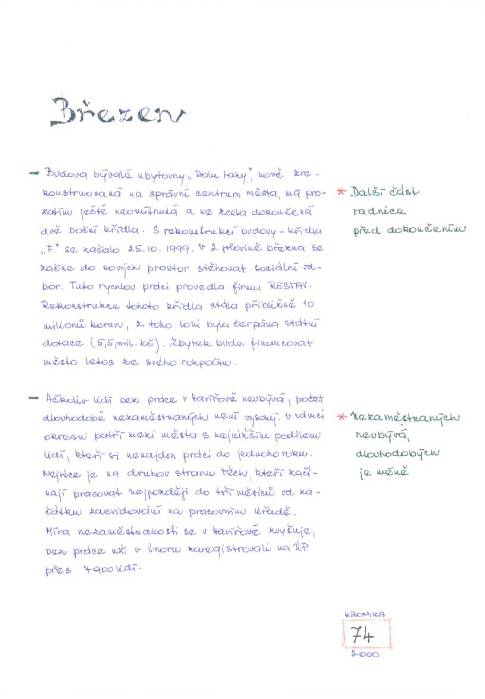 Březen
- Budova bývalé ubytovny "Dům taxy", nově zre-
konstruovaná na správní centrum města, má pro-
zatím ještě neomítnutá a ne zcela dokončená
dvě boční křídla. S rekonstrukcí budovy - křídla
"F" se začalo 25.10. 1999. V 2. polovině března se
začne do nových prostor stěhovat sociální od-
bor. Tuto rychlou práci provedla firma RESTAV.
Rekonstrukce tohoto křídla stála přibližně 10
milionů korun, z toho loni byla čerpána státní
dotace (5,5 mil. kč). Zbytek bude financovat
město letos ze svého rozpočtu.
* Další část
radnice
před dokončením
- Ačkoliv lidí bez práce v Havířově neubývá, počet
dlouhodobě nezaměstnaných není vysoký. V rámci
okresu patří mezi města s nejnižším podílem
lidí, kteří si nenajdou práci do jednoho roku.
Nejvíce je na druhou stranu těch, kteří začí-
nají pracovat nejpozději do tří měsíců od za-
čátku zaevidování na pracovním úřadě.
Míra nezaměstnanosti se v Havířově zvyšuje,
bez práce už v únoru zaregistrovali na ÚP
přes 7900 lidí.
* Nezaměstnaných
neubývá,
dlouhodobých
je méně
KRONIKA
74
2000